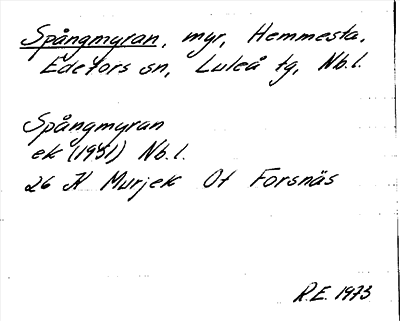 Spångmyran, myr, Hemmesta,
Edefors sn, Luleå tg, Nb.l.
Spångmyran
ek (1951) Nb.l.
26 K Murjek Öt Forsnäs
R.E. 1973